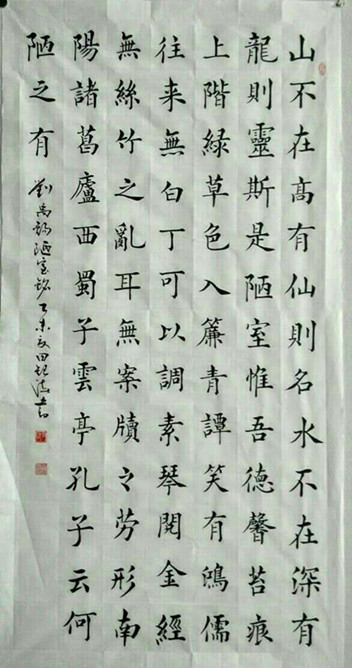 山不在高有仙則名水不在深有
龍則靈斯是陋室惟吾德馨苔痕
上階緑草色入簾青譚笑有鴻儒
往来無白丁可以調素琴閲金經
無絲竹之亂耳無案牘之劳形南
陽諸葛廬西蜀子雲亭孔子云何
陋之有
劉禹錫陋室銘乙未夏田